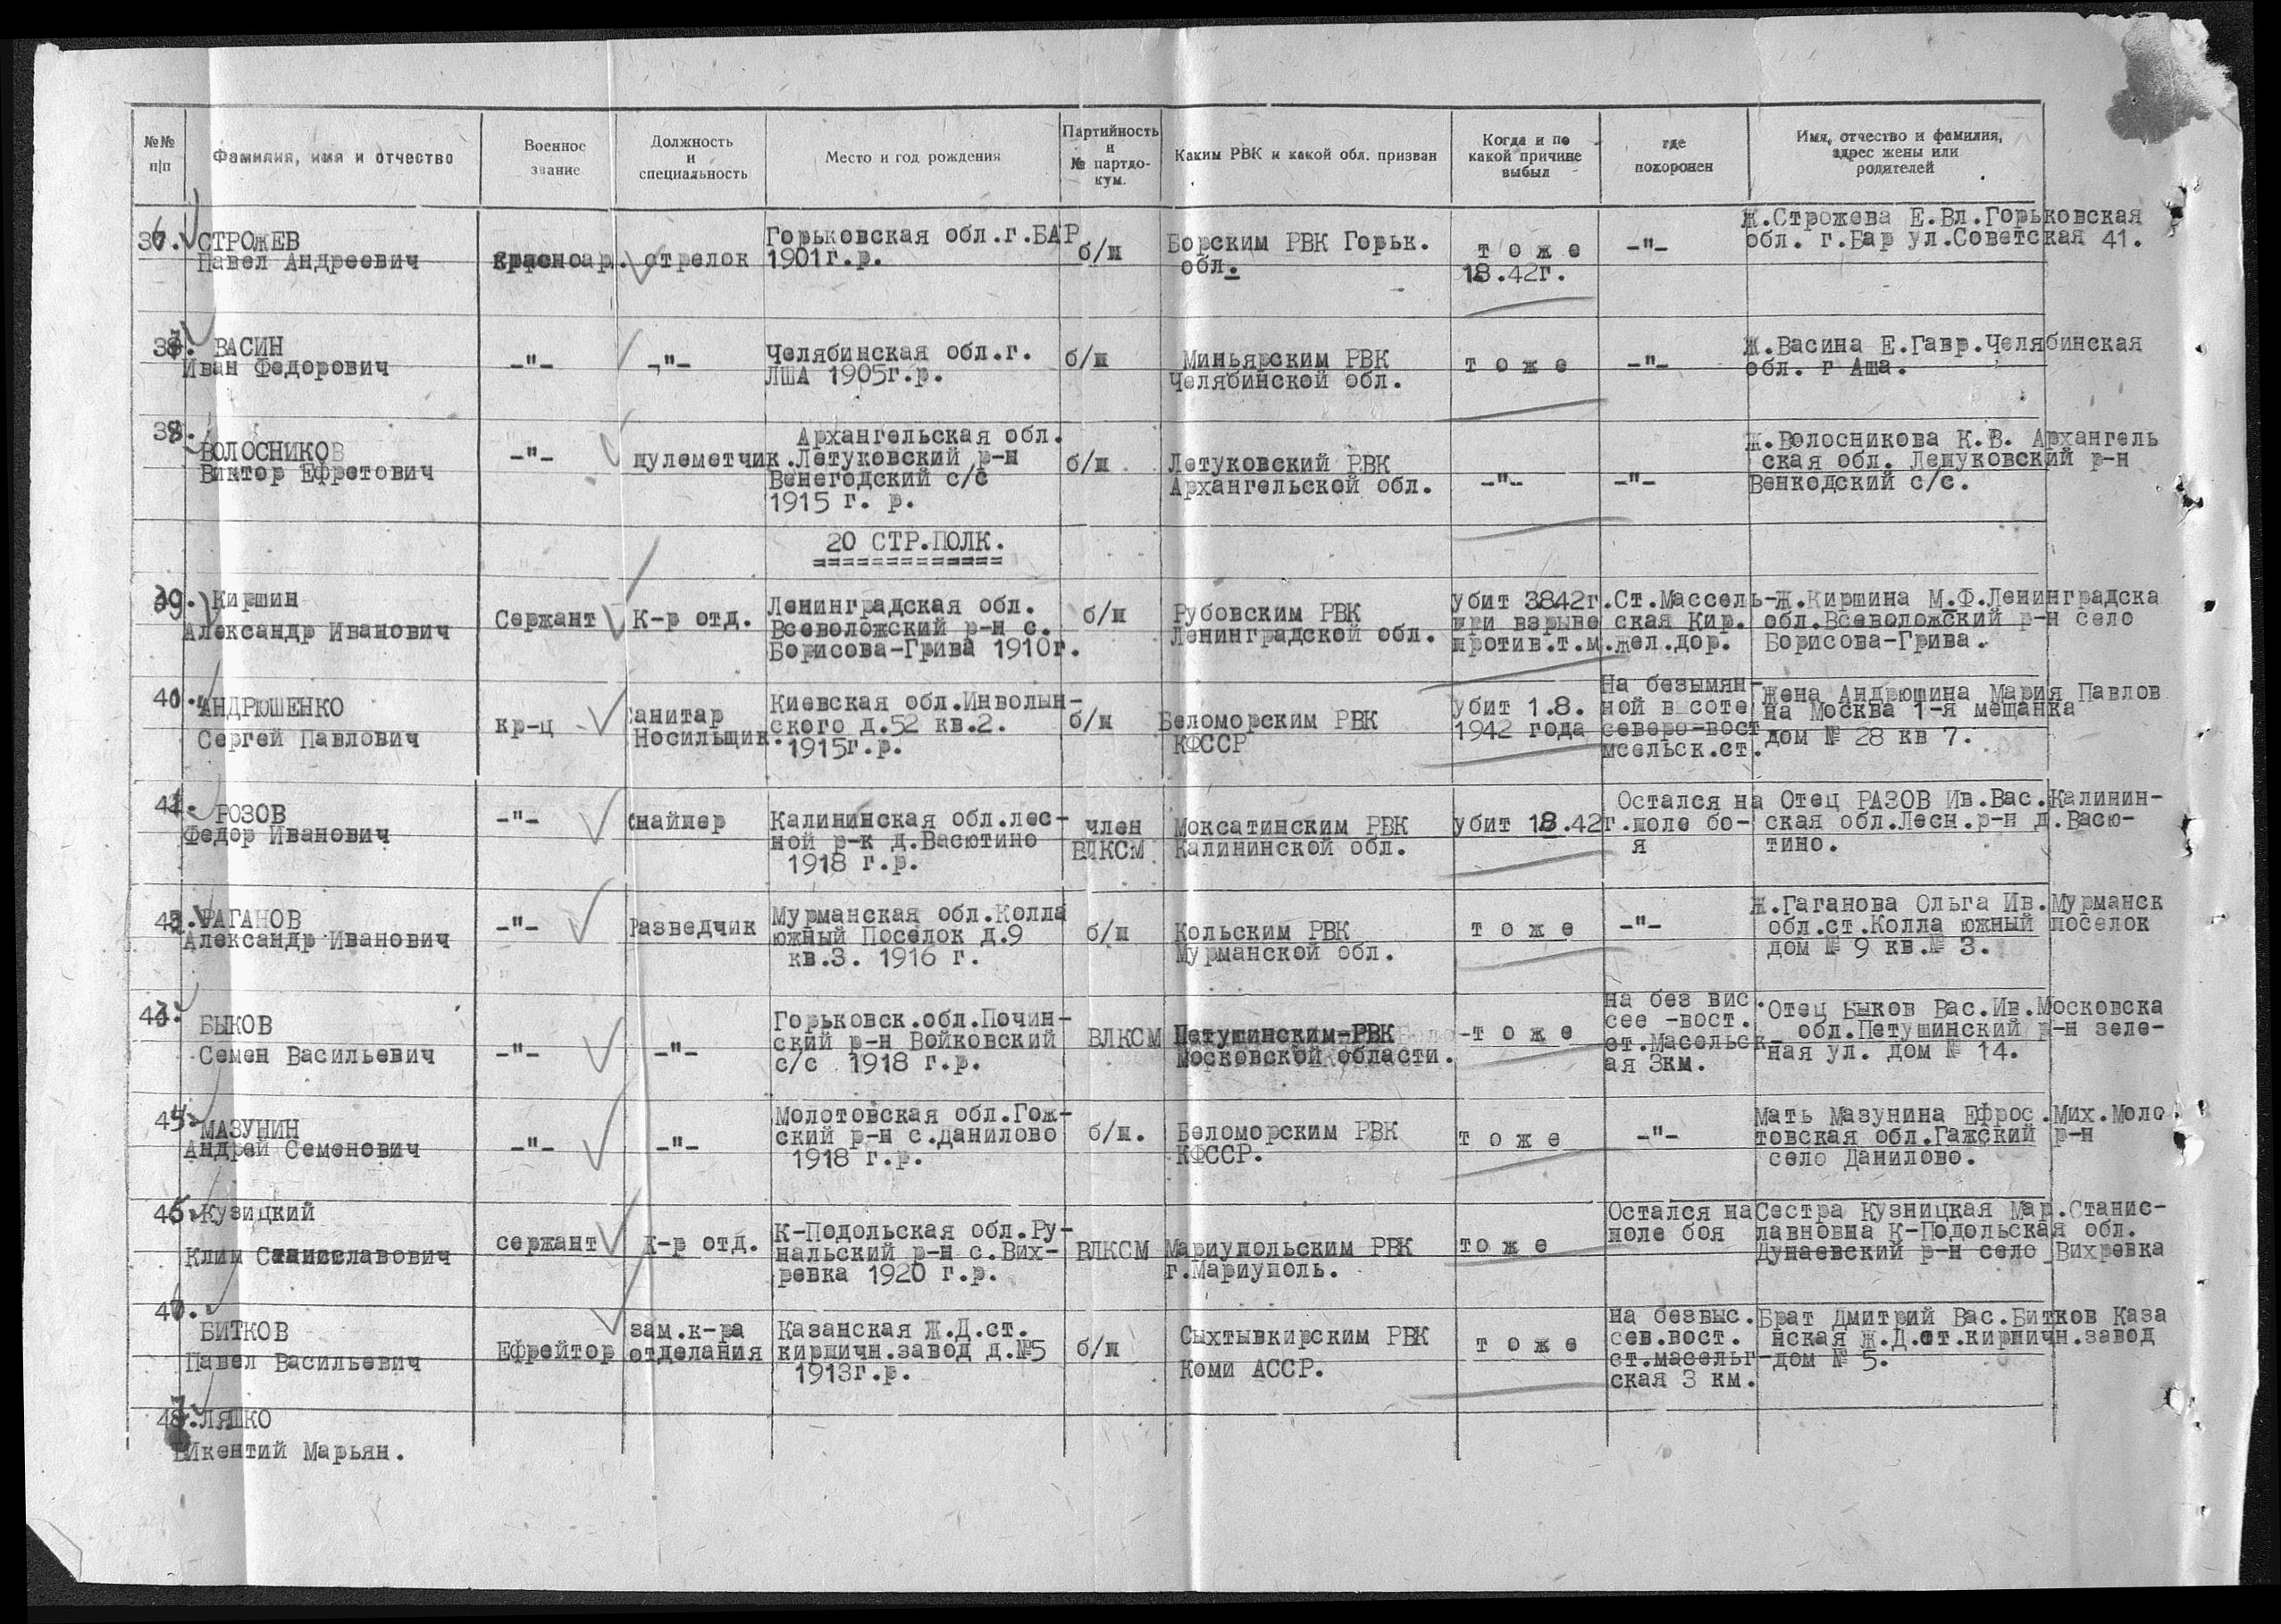 №№ п|п
Фамилия, имя и отчество
Военное звание
Должность и специальность
Место и год рождения
Партийность и № партдокум.
Каким РВК и какой обл. призван
Когда и по какой причине выбыл
где похоронен
Имя, отчество и фамилия, адрес жены или родителей
СТРОжЕВ
Павел Андреевич
Красноар.
стрелок
Горьковская обл.г.БАР
1901г.р.
б/п
Борским РВК Горьк.
обл.
т о ж е
18.42г.
-"-
Ж.Строжева Е.Вл.Горьковская
обл. г.Бар ул.Советская 41.
ВАСИН
Иван Федорович
-"-
-"-
Челябинская обл.г.
ЛША 1905г.р.
б/п
Миньярским РВК
Челябинской обл.
т о ж е
-"-
Ж.Васина Е.Гавр.Челябинская
обл. г Аша.
38.
ВОЛОСНИКОВ
Виктор Ефретович
-"-
пулеметчик.
Архангельская обл.
Летуковский р-н
Венегодский с/с
1915 г. р.
б/п
Летуковский РВК
Архангельской обл.
-"-
-"-
Ж.Волосникова К.В. Архангель
ская обл. Лешуковский р-н
Венкодский с/с.
20 СТР.ПОЛК.
=============
39.
Киршин
Александр Иванович
Сержант
К-р отд.
Ленинградская обл.
Всеволожский р-н с.
Борисова-Грива 1910г.
б/п
Рубовским РВК
Ленинградской обл.
убит 3842г.
при взрыве
против.т.м.
Ст.Массель-
ская Кир.
жел.дор.
Ж.Киршина М.Ф.Ленинградска
обл.Всеволожский р-н село
Борисова-Грива.
40.
АНДРЮШЕНКО
Сергей Павлович
кр-ц
Санитар
Носильщик.
Киевская обл.Инволын-
ского д.52 кв.2.
1915г.р.
б/п
Беломорским РВК
КФССР
убит 1.8.
1942 года
На безымян-
ной высоте
северо-вост
мсельск.ст.
Жена Андрюшина Мария Павлов
на Москва 1-я мещанка
дом № 28 кв 7.
41.
РОЗОВ
Федор Иванович
-"-
Снайпер
Калининская обл.лес-
ной р-к д.Васютино
1918 г.р.
член
ВЛКСМ
Моксатинским РВК
Калининской обл.
убит 18.42г.
Остался на
поле бо-
я
Отец РАЗОВ Ив.Вас.Калинин-
ская обл.Лесн.р-н д.Васю-
тино.
ГАГАНОВ
Александр Иванович
-"-
Разведчик
Мурманская обл.Колла
южный Поселок д.9
кв.3. 1916 г.
б/п
Кольским РВК
Мурманской обл.
т о ж е
-"-
Ж.Гаганова Ольга Ив.Мурманск
обл.ст.Колла южный поселок
дом № 9 кв.№ 3.
БЫКОВ
Семен Васильевич
-"-
-"-
Горьковск.обл.Почин-
ский р-н Войковский
с/с 1918 г.р.
ВЛКСМ
Петушинским-РВК
Московской области.
-т о ж е
на без вис.
сее -вост.
ст.Масельск-
ая 3км.
Отец Быков Вас.Ив.Московска
обл.Петушинский р-н зеле-
ная ул. дом № 14.
МАЗУНИН
Андрей Семенович
-"-
-"-
Молотовская обл.Гож-
ский р-н с.Данилово
1918 г.р.
б/п.
Беломорским РВК
КФССР.
т о ж е
-"-
Мать Мазунина Ефрос.Мих.Моло
товская обл.Гажский р-н
село Данилово.
Кузицкий
Клим Станиславович
сержант
К-р отд.
К-Подольская обл.Ру-
нальский р-н с.Вих-
ревка 1920 г.р.
ВЛКСМ
Мариупольским РВК
г.Мариуполь.
то ж е
Остался на
поле боя
Сестра Кузницкая Мар.Станис-
лавновна К-Подольская обл.
Дунаевский р-н село Вихревка
БИТКОВ
Павел Васильевич
Ефрейтор
зам.к-ра
отделания
Казанская Ж.Д.ст.
кирпичн.завод д.№5
1913г.р.
б/п
Сыхтывкирским РВК
Коми АССР.
т о ж е
на безвыс.
сев.вост.
ст.масельг-
ская 3 км.
Брат Дмитрий Вас.Битков Каза
нская Ж.Д.ст.кирпичн.завод
дом № 5.
ЛЯШКО
Викентий Марьян.